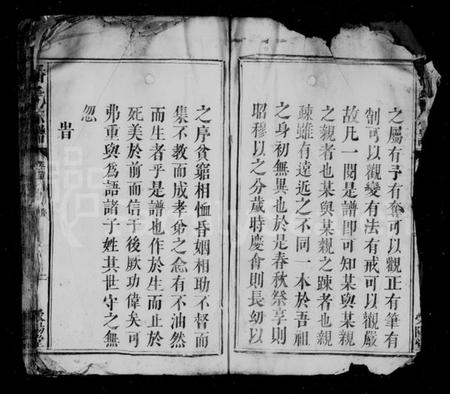 之屬有予有奪可以觀正有筆有
制可以觀變有法有戒可以觀嚴
故凡一閱是譜即可知某與某親
之親者也某與某親之踈者也親
踈雖有遠近之不同一本於吾祖
之身初無異也於是春秋祭享則
昭穆以之分歲時慶會則長幼以
之序貧窮相恤昏姻相助不督而
集不教而成孝弟之念有不油然
而生者乎是譜也作於生而止於
死美於前而信于後厥功偉矣可
弗重與爲語諸子姓其世守之無
忽